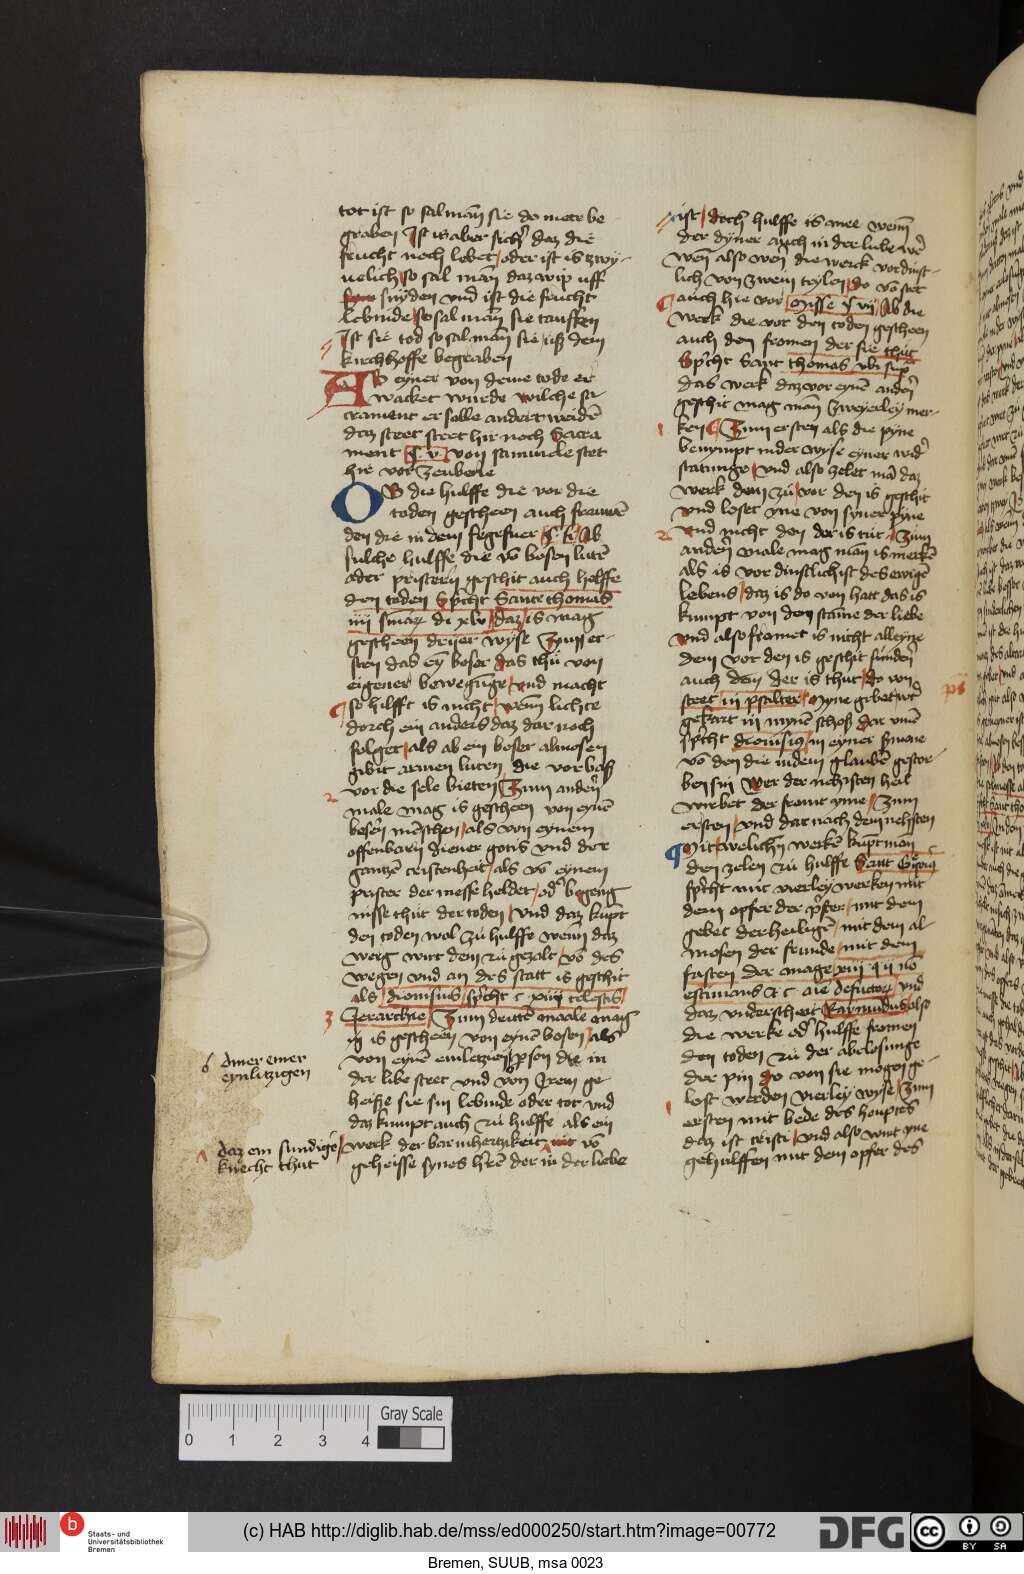 tot ist so sal man sie do mete be
graben Ist is aber sich' daz die
frucht noch lebet oder ist is zwy
uelich so sal man daz wip uff
snyden und ist die frucht
lebinde so sal man sie tauffen
Ist sie tod so sal man sie uß dem
kirchhoffe begraben
Ab eyner von deme tode er
wacket wurde wilche sa
crament er solle anderweide
daz steet steet hir noch Sacra
ment § v von samuele stet
hie vor zeuberie
OB die hulffe die vor die
toden gescheen auch fromē
den die in dem fegefuer § k Ab
sulche hulffe die vō bosen lutē
oder pristern geschit auch helffe
den toden Sp'cht Sante thomas
iiii sniaꝝ di xlv daz is mag
gescheen drijer wyse Zum er
sten das ey boser das thu von
eigener bewegūge und macht
so hilfft is nicht wen lichte
dorch ein anders daz dar noch
folget als ab ein boser almosen
gibit armen luten die vorbaß
vor die sele bieten Zum ander'
male mag is gescheen von eynē
besen mēschen als von eynem
offenbarn diener gotis und der
gantzē cristenheit als vō eynem
prister der messe heldet od' begeng
nisse thut der toden und daz kūpt
den toden wol zu hulffe wenn daz
werg wirt dem zu gezalt vō des
wegen und an des statt is geschit
als dionisius sp'cht c xiiii celestis
Gerarchie Zum dritten maale mag
is gescheen von eynē bosen als
von eynē einletzien pson die in
der libe steet und von Irem ge
heiße sie sin lebinde oder tot und
daz kumpt auch zu hulffe als ein
werk der barmhertzikeit vō
geheisse synes h'rē der in der liebe
6 ainer einer
eynlitzigen
daz ein sundige'
knecht thut
ist doch hulffe is mee wenn
der dyner auch in der liebe we'
Wen also wen die werck vordinst
lich von zwein teylen do vō stet
auch hie vor Messe § vii Ab die
werk die vor den toden gescheen
auch den fromen der sie thut
Sp'cht Sant thomas ubi sup'
das werk daz vor eynē ander'
geschit mag man zweyerley mer
1 ken Zum ersten als die pyne
benympt in der wyse eyner wid'
statunge und also zelet mā daz
werk dem zu vor den is geschit
und loset yne von syner pyne
2 und nicht den der is tut Zum
andern male mag man is merkē
als is vor dinstlich ist des ewigē
lebens daz is do von hatt das is
kumpt von dem stāme der liebe
und also fromet is nicht alleyne
dem vor den is geschit sundern
auch den der is thut do von
steet in psalter Myne gebet wt
gekart in mynē schoß dar umē
sp'cht dionisius in eyner smone
vō den die in dem glaubē gestor
ben sin Wer der nehsten heil
wirbet der fromt yme Zum
ersten und dar nach dem nehsten
Mit welichn werkē kūpt man
den zelen zu hulffe Sant G'goriꝯ
sp'cht mit vierley werken mit
dem opfer der p'ster mit dem
gebet der heiligē mit dem al
mosen der frunde mit dem
fasten der mage xiii q ii no
estimans et c aie defuctoꝝ und
daz underscheit Raimundus also
die werke od' hulffe fromen
den toden zu der ablosunge
der pin do von sie mogen g
lost werden vierley wyse Zum
1 ersten mit bede des houptes
daz ist cristi und also wirt yme
gehulffen mit dem opfer des
0 1 2 3 4
Gray Scale
b Staats- und
Universitätsbibliothek
Bremen
(c) HAB http://diglib.hab.de/mss/ed000250/start.htm?image=00772
DFG
cc BY SA
Bremen, SUUB, msa 0023